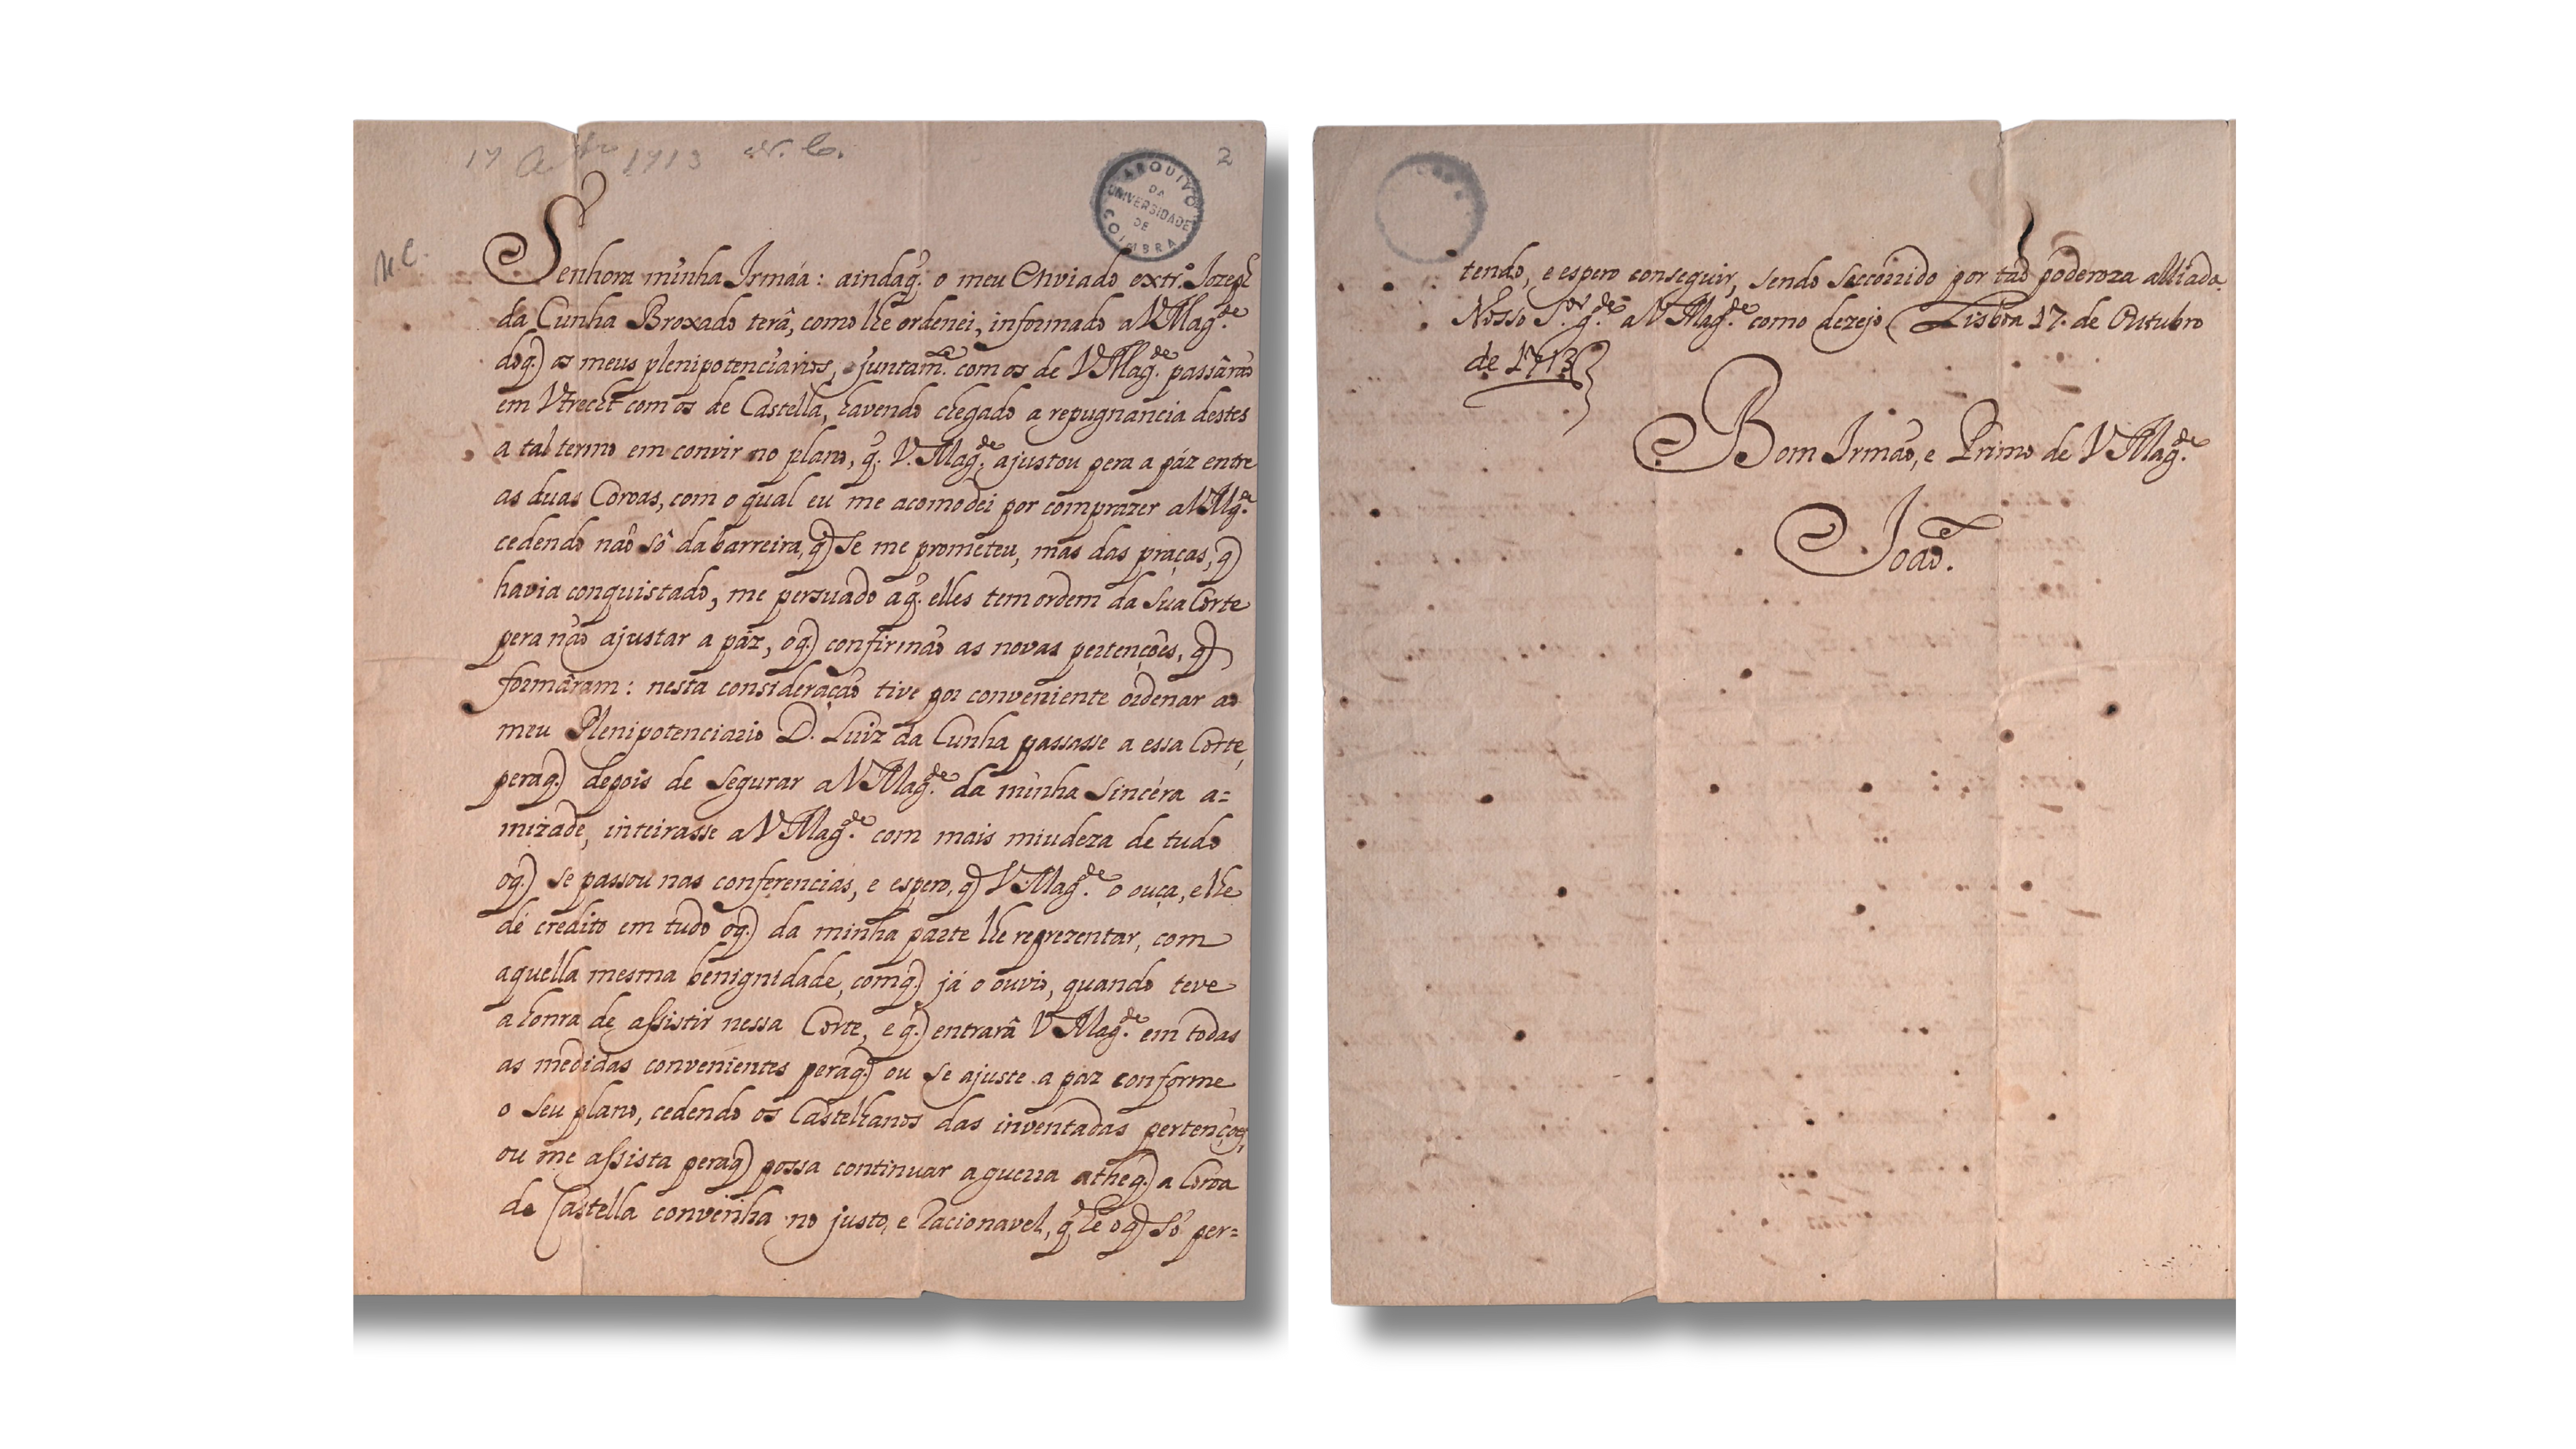 17 8bro 1713 N. C.
2
ARQUIVO
DA
UNIVERSIDADE
DE
COIMBRA
N.C.
Senhora minha Irmáa: aindaq̃. o meu Enviado extr.º Jozeph
da Cunha Broxado terâ, como lhe ordenei, informado a V Mag.de
doq̃) os meus plenipotenciarios, juntam.te com os de V Mag.de passârão
em Vtrecht com os de Castella, havendo chegado a repugnancia destes
a tal termo em convir no plano, q̃. V. Mag.de ajustou pera a páz entre
as duas Coroas, com o qual eu me acomodei por comprazer a V Mg.e
cedendo não sô da barreira, q̃) se me prometeu, mas das praças, q̃)
havia conquistado, me persuado aq̃. elles tem ordem da sua Corte
pera não ajustar a páz, oq̃) confirmão as novas pertenções, q̃)
formâram: nesta consideração tive por conveniente ordenar ao
meu Plenipotenciario D. Luiz da Cunha passasse a essa Corte,
peraq̃) depois de segurar a V Mag.de da minha sincéra a=
mizade, inteirasse a V Mag.de com mais miudeza de tudo
oq̃) se passou nas conferencias, e espero, q̃) V Mag.de o ouça, e lhe
dé credito em tudo oq̃) da minha parte lhe reprezentar, com
aquella mesma benignidade, comq̃) já o ouvio, quando teve
a honra de assistir nessa Corte, e q̃) entrarâ V Mag.de em todas
as medidas convenientes peraq̃) ou se ajuste a páz conforme
o seu plano, cedendo os Castelhanos das inventadas pertenções,
ou me assista peraq̃) possa continuar a guerra atheq̃) a Coroa
de Castella convenha no justo, e racionavel, q̃ hé oq̃) só per=
tendo, e espero conseguir, sendo soccorrido por tão poderoza alliada.
Nosso S.or g.de a V Mag.de como dezejo Lisboa 17. de Outubro
de 1713
Bom Irmão, e Primo de V Mag.de
João.